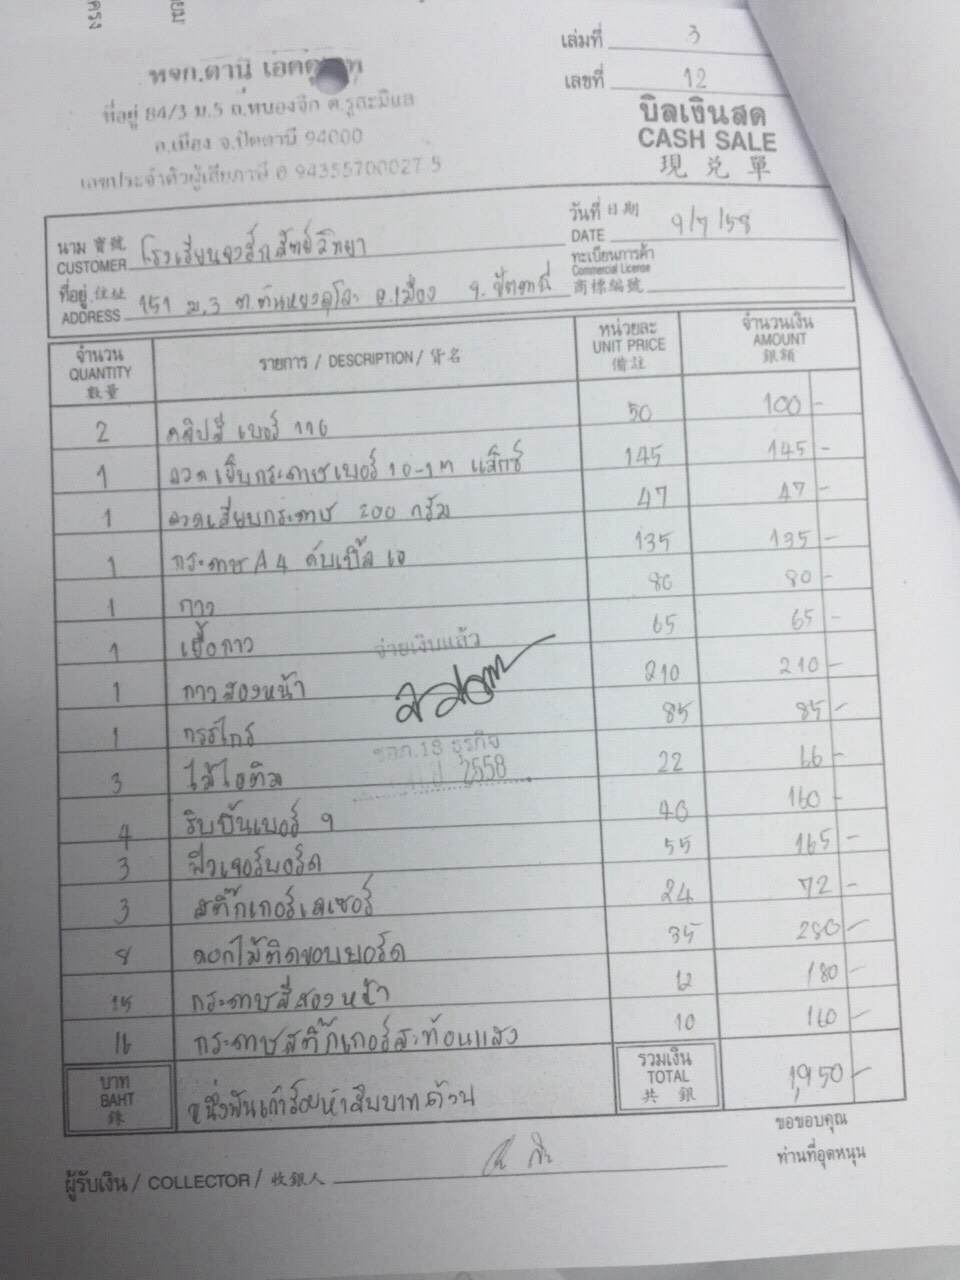 เล่มที่ 3
เลขที่ 12
หจก.ตานี
ที่อยู่ 84/3 ม.5 ถ.หนองจิก ต.รูสะมิแล
อ.เมือง จ.ปัตตานี 94000
เลขประจำตัวผู้เสียภาษี 0 94355700027 5
บิลเงินสด
CASH SALE
現兌單
นาม 寶號 CUSTOMER โรงเรียนจงรักสัตย์วิทยา
วันที่ 日期 DATE 9/7/58
ที่อยู่ 住址 ADDRESS 151 ม.3 ต.ตันหยงลุโละ อ.เมือง จ.ปัตตานี
ทะเบียนการค้า Commercial License 商標編號
จำนวน QUANTITY 數量 รายการ / DESCRIPTION / 貨名 หน่วยละ UNIT PRICE 備註 จำนวนเงิน AMOUNT 銀額
2 คลิปสี เบอร์ 116 50 100 -
1 ลวดเย็บกระดาษเบอร์ 10-1M แม็กซ์ 145 145 -
1 ลวดเสียบกระดาษ 200 กรัม 47 47 -
1 กระดาษ A4 ดับเบิ้ล เอ 135 135 -
1 กาว 80 80 -
1 เยื่อกาว 65 65 -
1 กาวสองหน้า 210 210 -
1 กรรไกร 85 85 -
3 ไม้ไอติม 22 66 -
4 ริบบิ้นเบอร์ 9 40 160 -
3 ฟิวเจอร์บอร์ด 55 165 -
3 สติ๊กเกอร์เลเซอร์ 24 72 -
8 ดอกไม้ติดขอบบอร์ด 35 280 -
15 กระดาษสีสองหน้า 12 180 -
16 กระดาษสติ๊กเกอร์สะท้อนแสง 10 160 -
จ่ายเงินแล้ว
2558
บาท BAHT 銖 หนึ่งพันเก้าร้อยห้าสิบบาทถ้วน รวมเงิน TOTAL 共銀 1,950 -
ขอขอบคุณ
ท่านที่อุดหนุน
ผู้รับเงิน / COLLECTOR / 收銀人